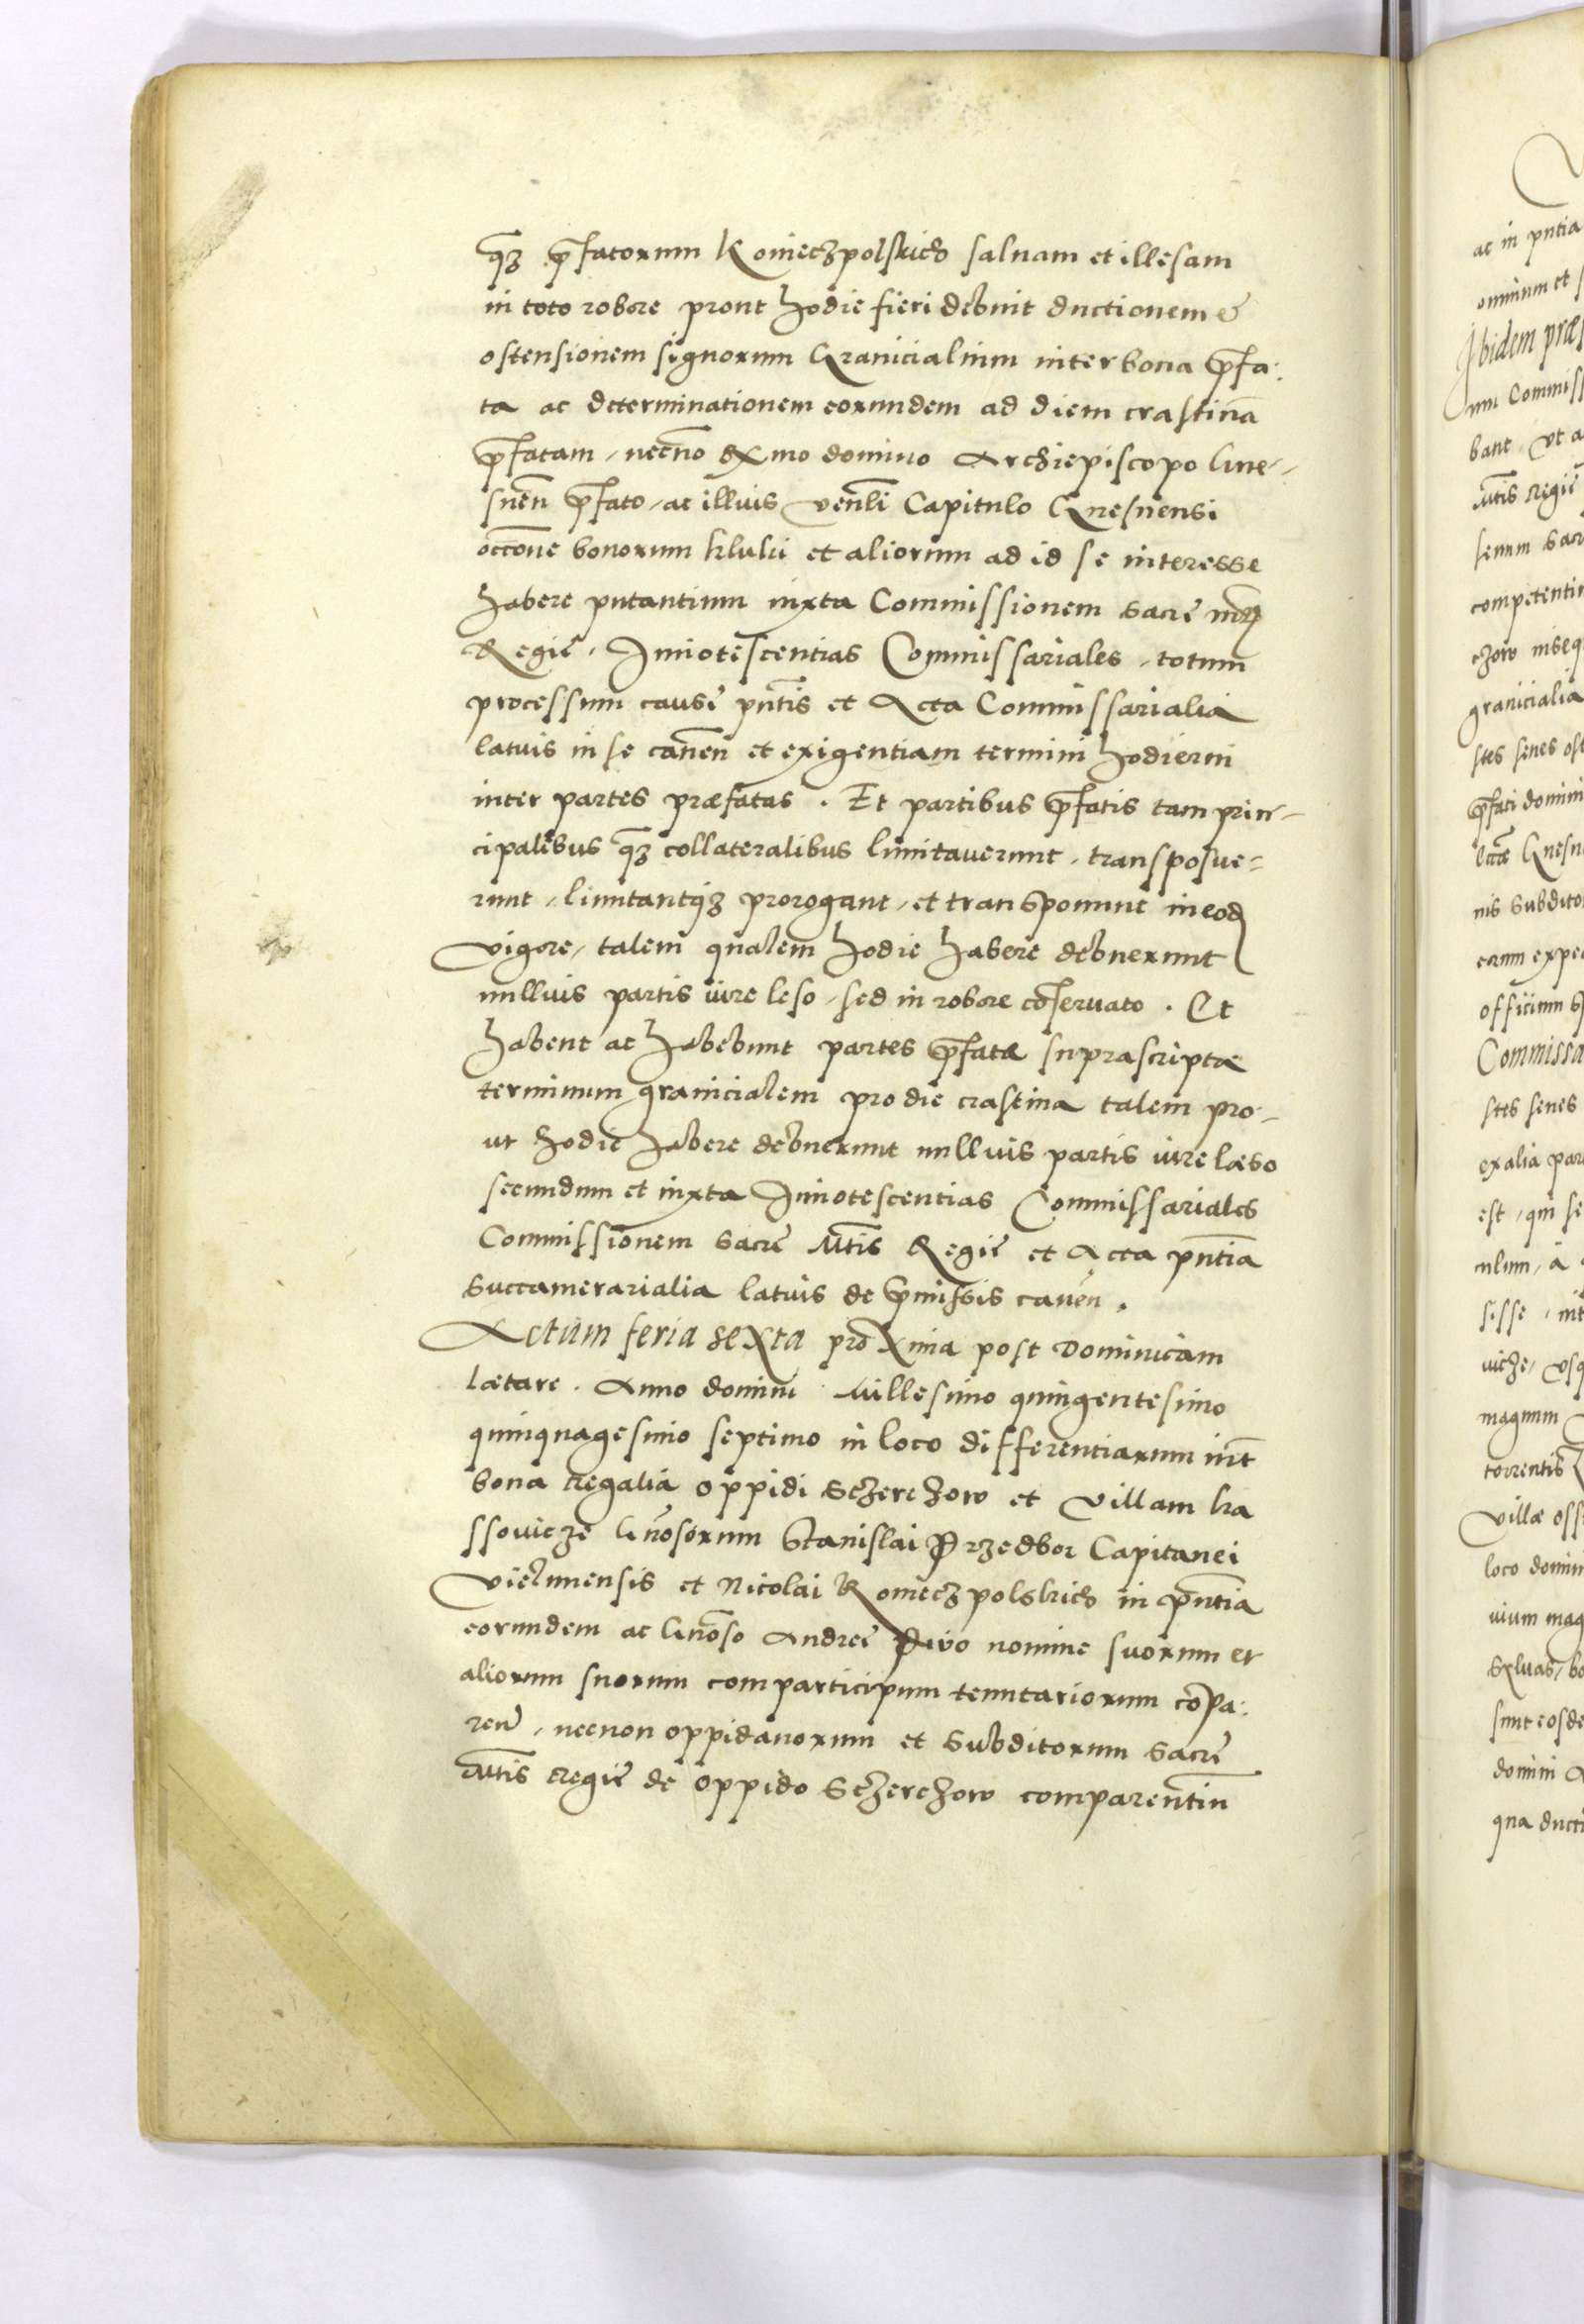 q̃ꝫ p̃fatorum Konieczpolskich saluam et illesam
in toto robore prout hodie fieri debuit ductionem et
ostensionem signorum Granicialium inter bona p̃fa:
ta ac determinationem eorundem ad diem crastinā
p̃fatam, necnō Rx̃mo domino Archiepiscopo Gne-
sneñ p̃fato, ac illius Veñli Capitulo Gnesnensi
occ̃one bonorum kluki et aliorum ad id se interesse
habere putantium iuxta Commissionem sacrę
Regię, Innotescentias Commissariales, totum
processum causę pñtis et Acta Commissarialia
latius in se cañeñ et exigentiam termini hodierni
inter partes præfatas. Et partibus p̃fatis tam prin-
cipalibus q̃ꝫ collateralibus limitauerunt, transposue=
runt, limitantqꝫ prorogant, et transponunt in eod
vigore, talem qualem hodie habere debuerunt
nullius partis iure leso, sed in robore cõseruato. Et
habent ac habebunt partes p̃fatæ suprascriptæ
terminum granicialem pro die crastina talem pro-
ut hodie habere debuerunt nullius partis iure læso
secundum et iuxta Innotescentias Commissariales
Commissionem sacrę Mtis Regię et Acta pñtia
Succamerarialia latius de p̃missis caneñ.
Actum feria sexta proxima post Dominicam
Lætare. Anno domini Millesimo quingentesimo
quinquagesimo septimo in loco differentiarum int̃
bona regalia oppidi Sczerczow et Villam ka
ssovicze Gñosorum Stanislai Przedbor Capitanei
Vielunensis et Nicolai Konieczpolskich in pñtia
eorundem ac Gñoso Andreę Pivo nomine suorum et
aliorum suorum comparticipum tenutariorum cõpa:
reñ, necnon oppidanorum et Subditorum Sacrę
Mtis Regię de oppido Sczerczow comparentiu